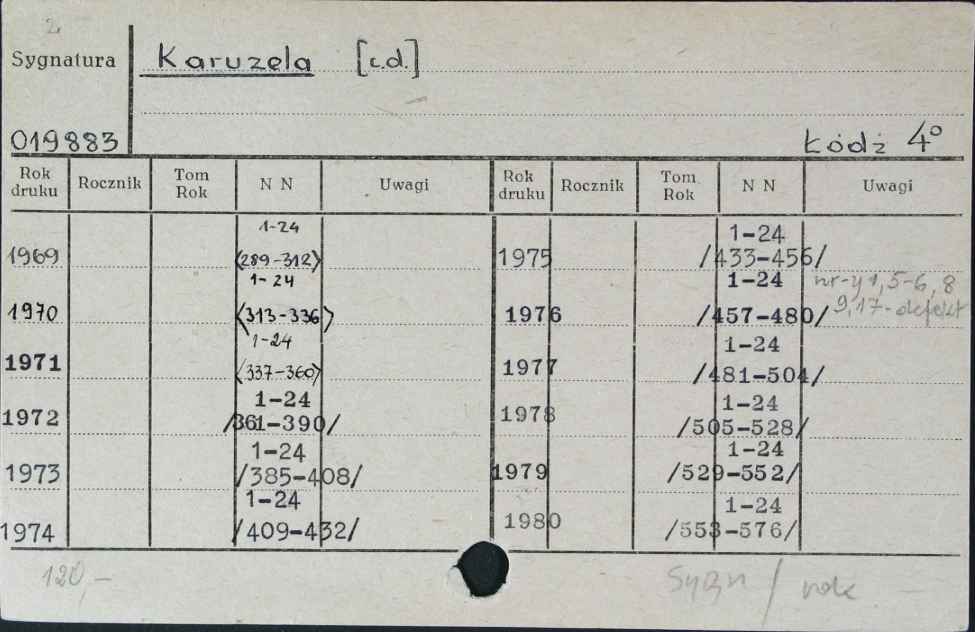 2
Sygnatura
Karuzela [c.d.]
019883
Łódź 4°
Rok druku Rocznik Tom Rok N N Uwagi Rok druku Rocznik Tom Rok N N Uwagi
1-24
1969 (289-312)
1-24
1970 (313-336)
1-24
1971 (337-360)
1-24
1972 /361-390/
1-24
1973 /385-408/
1-24
1974 /409-432/
1-24
1975 /433-456/
1-24 nr-y 1, 5-6, 8
1976 /457-480/ 9, 17-defekt
1-24
1977 /481-504/
1-24
1978 /505-528/
1-24
1979 /529-552/
1-24
1980 /553-576/
120,-
Sygn / rok